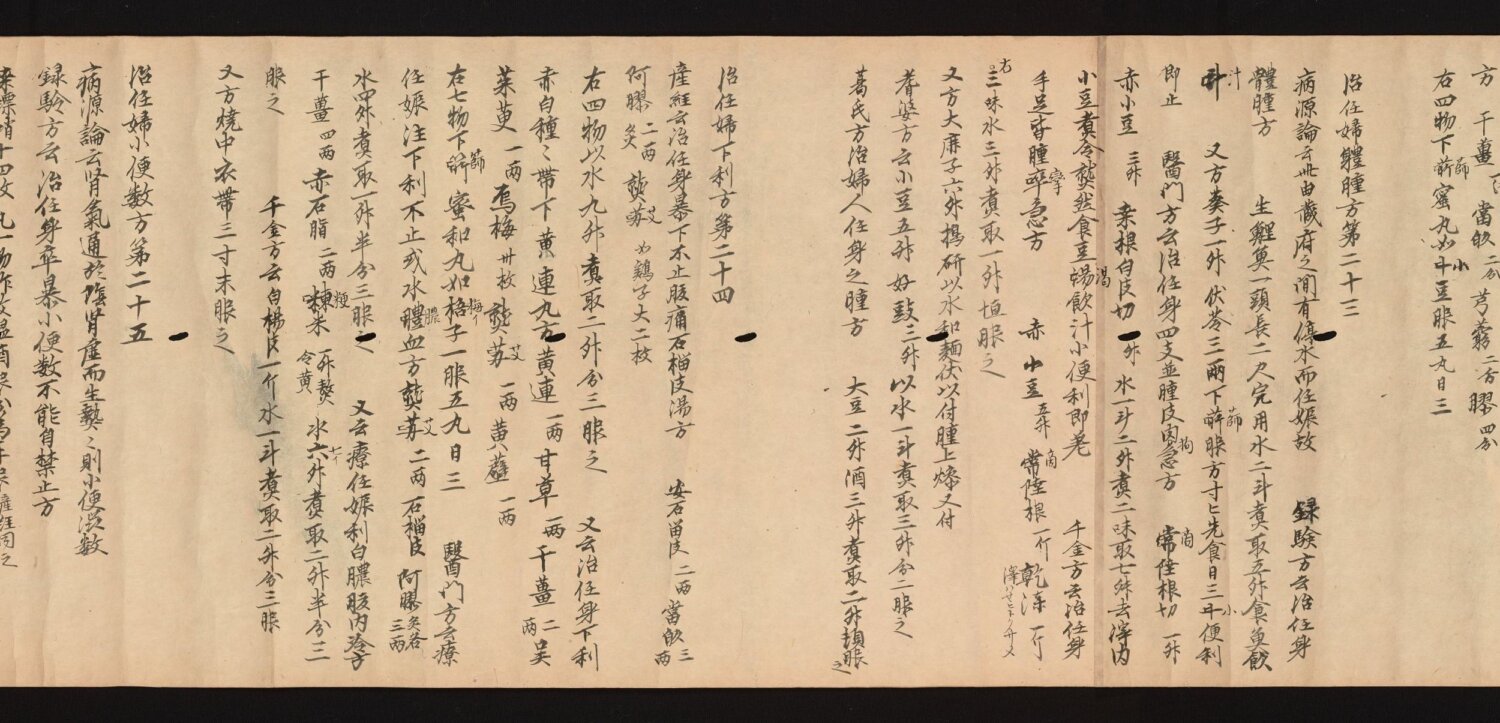 方 干薑 當皈二分 芎藭二分 膠四分
右四物下篩蜜丸如小豆服五丸日三
治任婦體腫方第二十三
病源論云此由藏府之間有停水而任娠故 録験方云治任身
體腫方 生鯉魚一頭長二尺完用水二斗煮取五升食魚飲
汁 又方葵子一升伏苓三兩下篩服方寸匕先食日三小便利
即止 醫門方云治任身四支並腫皮肉拘急方 商陸根切一升
赤小豆三升 桒根白皮切一升 水一斗二升煮二味取七升去滓内
小豆煮令熟然食豆渇飲汁小便利即差 千金方云治任身
手足皆腫卒急方 赤小豆五升 商陸根一斤 乾漆一斤
右三味水三升煮取一升恒服之
又方大麻子六升搗研以水和麵伏以付腫上燥又付
耆婆方云小豆五升好豉三升以水一斗煮取三升分二服之
葛氏方治婦人任身之腫方 大豆二升酒三升煮取二升頓服之
治任婦下利方第二十四
産経云治任身暴下不止腹痛石榴皮湯方 安石留皮二兩當皈三兩
阿膠二兩炙 熟艾如鷄子大二枚
右四物以水九升煮取二升分三服之 又云治任身下利
赤白種〻帶下黄連丸方 黄連一兩 甘草一兩 干薑二兩 吴
茱萸一兩 烏梅卅枚 熟艾一兩 黄蘗一兩
右七物下篩蜜和丸如梧子一服五丸日三 醫門方云療
任娠注下利不止或水膿血方 熟艾二兩 石榴皮 阿膠炙各三兩
水四升煮取一升半分三服之 又云療任娠利白膿腹内冷方
干薑四兩 赤石脂二兩 粳米一升熬令黄 水六升煮取二升半分三
服之 千金方云白楊皮一斤水一斗煮取二升分三服
又方燒中衣帶三寸末服之
治任婦小便数方第二十五
病源論云腎氣通於陰腎虚而生熱〻則小便澁数
録験方云治任身卒暴小便数不能自禁止方
桒螵蛸十四枚